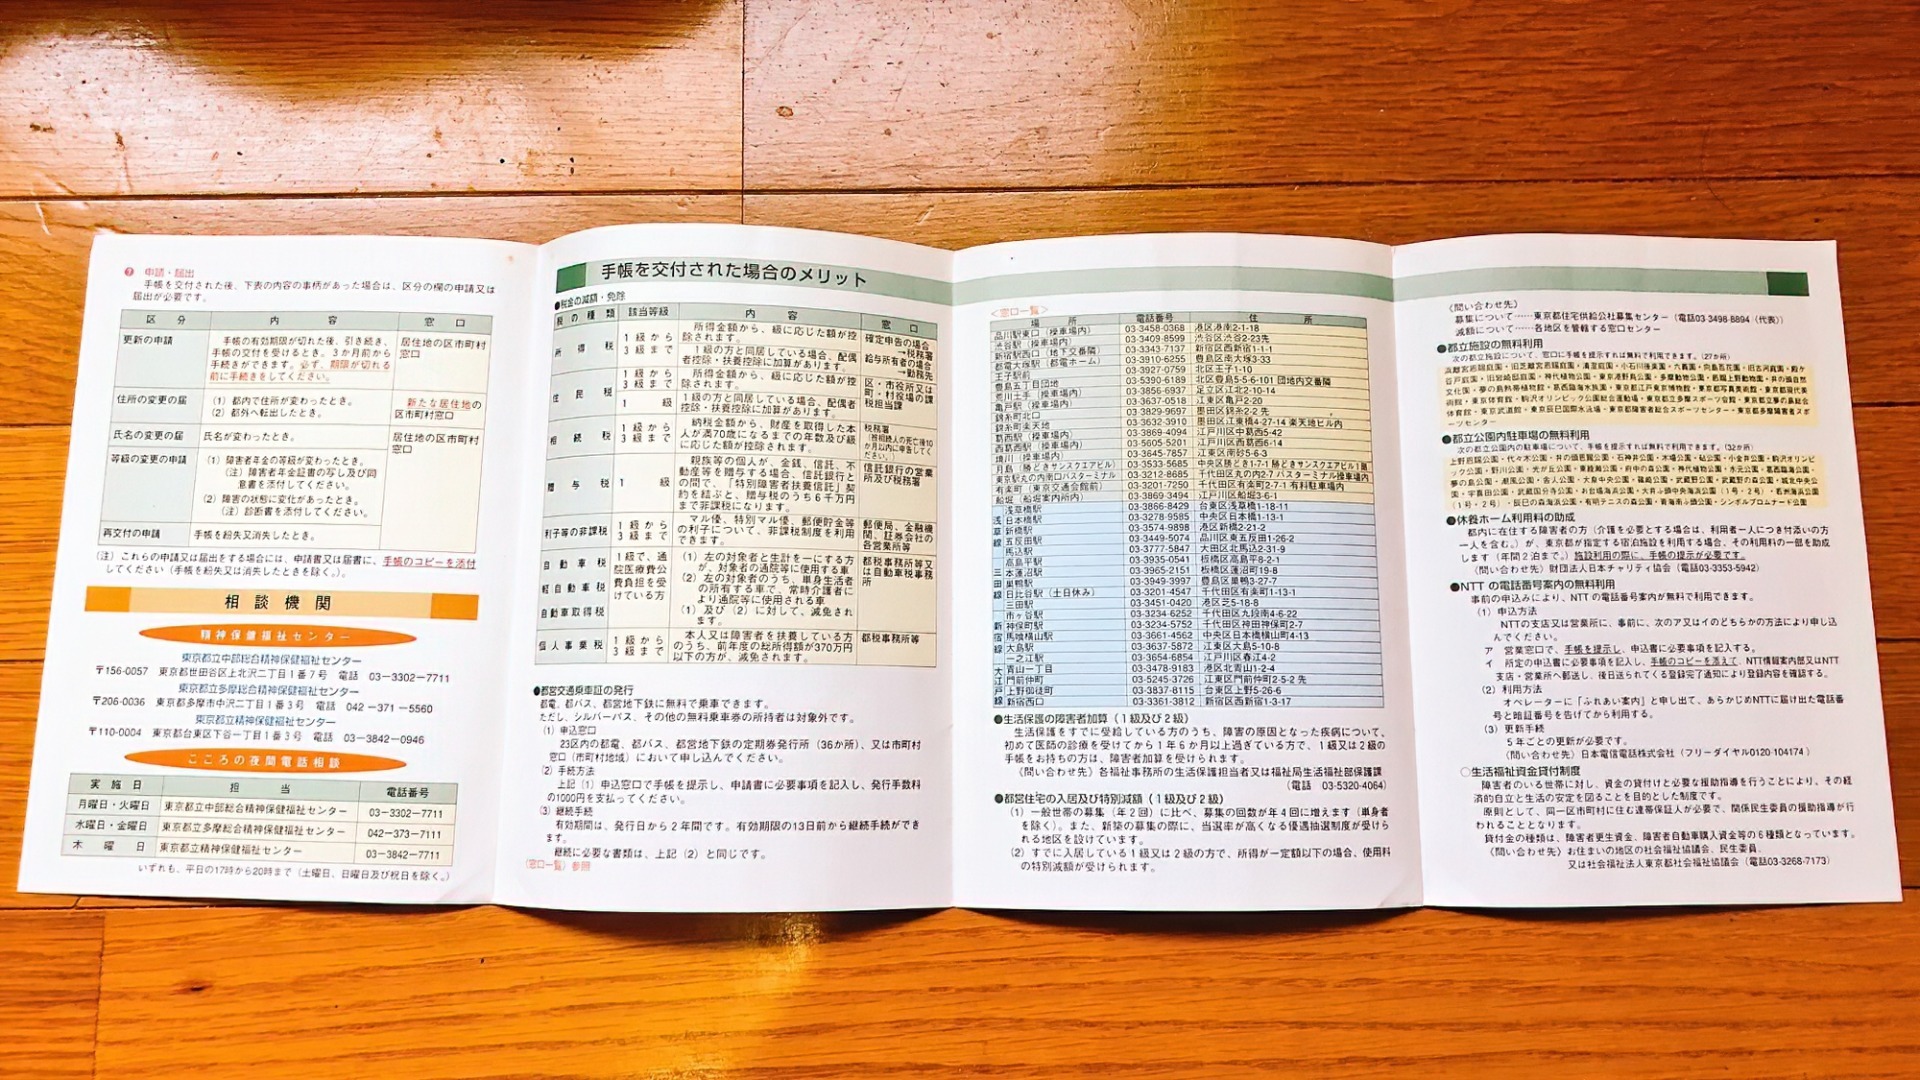 ❼ 申請・届出
手帳を交付された後、下表の内容の事柄があった場合は、区分の欄の申請又は
届出が必要です。
区 分 内 容 窓 口
更新の申請 手帳の有効期限が切れた後、引き続き、 居住地の区市町村
手帳の交付を受けるとき。3か月前から 窓口
手続きができます。必ず、期限が切れる
前に手続きをしてください。
住所の変更の届 (1) 都内で住所が変わったとき。 新たな居住地の
(2) 都外へ転出したとき。 区市町村窓口
氏名の変更の届 氏名が変わったとき。 居住地の区市町村
窓口
等級の変更の申請 (1) 障害者年金の等級が変わったとき。
(注) 障害者年金証書の写し及び同
意書を添付してください。
(2) 障害の状態に変化があったとき。
(注) 診断書を添付してください。
再交付の申請 手帳を紛失又消失したとき。
(注) これらの申請又は届出をする場合には、申請書又は届書に、手帳のコピーを添付
してください(手帳を紛失又は消失したときを除く。)。
相談機関
精神保健福祉センター
東京都立中部総合精神保健福祉センター
〒156-0057 東京都世田谷区上北沢二丁目1番7号 電話 03-3302-7711
東京都立多摩総合精神保健福祉センター
〒206-0036 東京都多摩市中沢二丁目1番3号 電話 042-371-5560
東京都立精神保健福祉センター
〒110-0004 東京都台東区下谷一丁目1番3号 電話 03-3842-0946
こころの夜間電話相談
実施日 担 当 電話番号
月曜日・火曜日 東京都立中部総合精神保健福祉センター 03-3302-7711
水曜日・金曜日 東京都立多摩総合精神保健福祉センター 042-373-7111
木 曜 日 東京都立精神保健福祉センター 03-3842-7711
いずれも、平日の17時から20時まで(土曜日、日曜日及び祝日を除く。)
手帳を交付された場合のメリット
●税金の減額・免除
税の種類 該当等級 内 容 窓 口
所 得 税 1級から 所得金額から、級に応じた額が控 確定申告の場合
3級まで 除されます。 →税務署
1級の方と同居している場合、配偶 給与所有者の場合
者控除・扶養控除に加算があります。 →勤務先
住 民 税 1級から 所得金額から、級に応じた額が控 区・市役所又は
3級まで 除されます。 町・村役場の課
1 級 1級の方と同居している場合、配偶者 税担当課
控除・扶養控除に加算があります。
相 続 税 1級から 納税金額から、財産を取得した本 税務署
3級まで 人が満70歳になるまでの年数及び級 (被相続人の死亡後10
に応じた額が控除されます。 か月以内に申告してく
ださい。)
贈 与 税 1 級 親族等の個人が、金銭、信託、不 信託銀行の営業
動産等を贈与する場合、信託銀行と 所及び税務署
の間で、「特別障害者扶養信託」契
約を結ぶと、贈与税のうち6千万円
まで非課税になります。
利子等の非課税 1級から マル優、特別マル優、郵便貯金等 郵便局、金融機
3級まで の利子について、非課税制度を利用 関、証券会社の
できます。 各営業所等
自動車税 1級で、通 (1) 左の対象者と生計を一にする方 都税事務所等又
軽自動車税 院医療費公 が、対象者の通院等に使用する車 は自動車税事務
自動車取得税 費負担を受 (2) 左の対象者のうち、単身生活者 所
けている方 の所有する車で、常時介護者に
より通院等に使用される車
(1) 及び (2) に対して、減免され
ます。
個人事業税 1級から 本人又は障害者を扶養している方 都税事務所等
3級まで のうち、前年度の総所得額が370万円
以下の方が、減免されます。
●都営交通乗車証の発行
都電、都バス、都営地下鉄に無料で乗車できます。
ただし、シルバーパス、その他の無料乗車券の所持者は対象外です。
(1) 申込窓口
23区内の都電、都バス、都営地下鉄の定期券発行所(36か所)、又は市町村
窓口(市町村地域)において申し込んでください。
(2) 手続方法
上記(1)申込窓口で手帳を提示し、申請書に必要事項を記入し、発行手数料
の1000円を支払ってください。
(3) 継続手続
有効期間は、発行日から2年間です。有効期限の13日前から継続手続ができ
ます。
継続に必要な書類は、上記(2)と同じです。
〈窓口一覧〉参照
〈窓口一覧〉
場 所 電話番号 住 所
品川駅東口(操車場内) 03-3458-0368 港区港南2-1-18
渋谷駅(操車場内) 03-3409-8599 渋谷区渋谷2-23先
新宿駅西口(地下交番隣) 03-3343-7137 新宿区西新宿1-1-1
都電大塚駅(都電ホーム) 03-3910-6255 豊島区南大塚3-33
王子駅前 03-3927-0759 北区王子1-10
豊島五丁目団地 03-5390-6189 北区豊島5-5-6-101 団地内交番隣
荒川土手(操車場内) 03-3856-6937 足立区江北2-10-14
亀戸駅(操車場内) 03-3637-0518 江東区亀戸2-20
錦糸町北口 03-3829-9697 墨田区錦糸2-2 先
錦糸町楽天地 03-3632-3910 墨田区江東橋4-27-14 楽天地ビル内
葛西駅(操車場内) 03-3869-4094 江戸川区中葛西5-42
西葛西駅(操車場内) 03-5605-5201 江戸川区西葛西6-14
境川(操車場内) 03-3645-7857 江東区南砂5-6-3
月島(勝どきサンスクエアビル) 03-3533-5685 中央区勝どき1-7-1 勝どきサンスクエアビル1階
東京駅丸の内南口バスターミナル 03-3212-8685 千代田区丸の内2-7 バスターミナル操車場内
有楽町(東京交通会館前) 03-3201-7250 千代田区有楽町2-7-1 有料駐車場内
船堀(船堀案内所内) 03-3869-3494 江戸川区船堀3-6-1
浅草橋駅 03-3866-8429 台東区浅草橋1-18-11
浅 日本橋駅 03-3278-9585 中央区日本橋1-13-1
草 新橋駅 03-3574-9898 港区新橋2-21-2
線 五反田駅 03-3449-5074 品川区東五反田1-26-2
馬込駅 03-3777-5847 大田区北馬込2-31-9
高島平駅 03-3935-0541 板橋区高島平8-2-1
三 本蓮沼町 03-3965-2151 板橋区蓮沼町19-8
田 巣鴨駅 03-3949-3997 豊島区巣鴨3-27-7
線 日比谷駅(土日休み) 03-3201-4547 千代田区有楽町1-13-1
三田駅 03-3451-0420 港区芝5-18-8
市ヶ谷駅 03-3234-6252 千代田区九段南4-6-22
新 神保町駅 03-3234-5752 千代田区神田神保町2-7
宿 馬喰横山駅 03-3661-4562 中央区日本橋横山町4-13
線 大島駅 03-3637-5872 江東区大島5-10-8
一之江駅 03-3654-6854 江戸川区春江4-2
大 青山一丁目 03-3478-9183 港区北青山1-2-4
江 門前仲町 03-5245-3726 江東区門前仲町2-5-2 先
戸 上野御徒町 03-3837-8115 台東区上野5-26-6
線 新宿西口 03-3361-3812 新宿区西新宿1-3-17
●生活保護の障害者加算(1級及び2級)
生活保護をすでに受給している方のうち、障害の原因となった疾病について、
初めて医師の診療を受けてから1年6か月以上過ぎている方で、1級又は2級の
手帳をお持ちの方は、障害者加算を受けられます。
〈問い合わせ先〉各福祉事務所の生活保護担当者又は福祉局生活福祉部保護課
(電話 03-5320-4064)
●都営住宅の入居及び特別減額(1級及び2級)
(1) 一般世帯の募集(年2回)に比べ、募集の回数が年4回に増えます(単身者
を除く)。また、新築の募集の際に、当選率が高くなる優遇抽選制度が受けら
れる地区を設けています。
(2) すでに入居している1級又は2級の方で、所得が一定額以下の場合、使用料
の特別減額が受けられます。
〈問い合わせ先〉
募集について……東京都住宅供給公社募集センター(電話03-3498-8894(代表))
減額について……各地区を管轄する窓口センター
●都立施設の無料利用
次の都立施設について、窓口に手帳を提示すれば無料で利用できます。(27か所)
浜離宮恩賜庭園・旧芝離宮恩賜庭園・清澄庭園・小石川後楽園・六義園・向島百花園・旧古河庭園・殿ケ
谷戸庭園・旧岩崎邸庭園・神代植物公園・東京港野鳥公園・多摩動物公園・恩賜上野動物園・井の頭自然
文化園・夢の島熱帯植物館・東京都江戸東京博物館・葛西臨海水族園・東京都写真美術館・東京都現代美
術館・東京体育館・駒沢オリンピック公園総合運動場・東京都立多摩スポーツ会館・東京都立夢の島総合
体育館・東京武道館・東京辰巳国際水泳場・東京都障害者総合スポーツセンター・東京都多摩障害者スポ
ーツセンター
●都立公園内駐車場の無料利用
次の都立公園内の駐車場について、手帳を提示すれば無料で利用できます。(32か所)
上野恩賜公園・代々木公園・井の頭恩賜公園・石神井公園・木場公園・砧公園・小金井公園・駒沢オリンピ
ック公園・野川公園・光が丘公園・東綾瀬公園・府中の森公園・神代植物公園・水元公園・葛西臨海公園・
夢の島公園・潮風公園・舎人公園・大泉中央公園・篠崎公園・武蔵野公園・武蔵野の森公園・城北中央公
園・宇喜田公園・武蔵国分寺公園・お台場海浜公園・大井ふ頭中央海浜公園(1号・2号)・若洲海浜公園
(1号・2号)・辰巳の森海浜公園・有明テニスの森公園・青海南ふ頭公園・シンボルプロムナード公園
●休養ホーム利用料の助成
都内に在住する障害者の方(介護を必要とする場合は、利用者一人につき付添いの方
一人を含む。)が、東京都が指定する宿泊施設を利用する場合、その利用料の一部を助成
します(年間2泊まで。)施設利用の際に、手帳の提示が必要です。
〈問い合わせ先〉財団法人日本チャリティ協会(電話03-3353-5942)
●NTTの電話番号案内の無料利用
事前の申込みにより、NTTの電話番号案内が無料で利用できます。
(1) 申込方法
NTTの支店又は営業所に、事前に、次のア又はイのどちらかの方法により申し込
んでください。
ア 営業窓口で、手帳を提示し、申込書に必要事項を記入する。
イ 所定の申込書に必要事項を記入し、手帳のコピーを添えて、NTT情報案内部又はNTT
支店・営業所へ郵送し、後日送られてくる登録完了通知により登録内容を確認する。
(2) 利用方法
オペレーターに「ふれあい案内」と申し出て、あらかじめNTTに届け出た電話番
号と暗証番号を告げてから利用する。
(3) 更新手続
5年ごとの更新が必要です。
〈問い合わせ先〉日本電信電話株式会社(フリーダイヤル0120-104174)
○生活福祉資金貸付制度
障害者のいる世帯に対し、資金の貸付けと必要な援助指導を行うことにより、その経
済的自立と生活の安定を図ることを目的とした制度です。
原則として、同一区市町村に住む連帯保証人が必要で、関係民生委員の援助指導が行
われることとなります。
貸付金の種類は、障害者更生資金、障害者自動車購入資金等の6種類となっています。
〈問い合わせ先〉お住まいの地区の社会福祉協議会、民生委員、
又は社会福祉法人東京都社会福祉協議会(電話03-3268-7173)